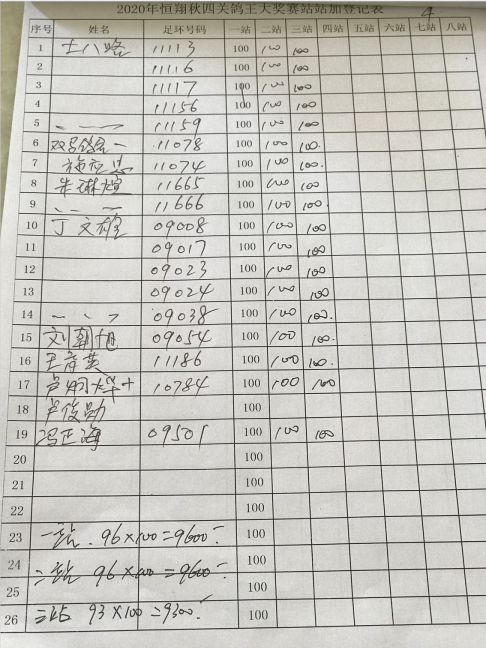 2020年恒翔秋四关鸽王大奖赛站站加登记表 4
序号 姓名 足环号码 一站 二站 三站 四站 五站 六站 七站 八站
1 士八路 11113 100 100 100
2 11116 100 100 100
3 11117 100 100 100
4 11156 100 100 100
5 11159 100 100 100
6 11078 100 100 100.
7 11074 100 100 100
8 朱琳煊 11665 100 100 100
9 11666 100 100 100.
10 丁文雄 09008 100 100 100
11 09017 100 100 100
12 09023 100 100 100
13 09024 100 100 100
14 09038 100 100 100.
15 刘朝旭 09054 100 100 100.
16 11186 100 100 100.
17 10784 100 100 100
18 卢俊勋 100
19 冯正海 09501 100 100 100
20 100
21 100
22 100
23 一站. 96×100=9600.- 100
24 二站 96×100=9600.- 100
25 100
26 三站 93×100=9300.- 100